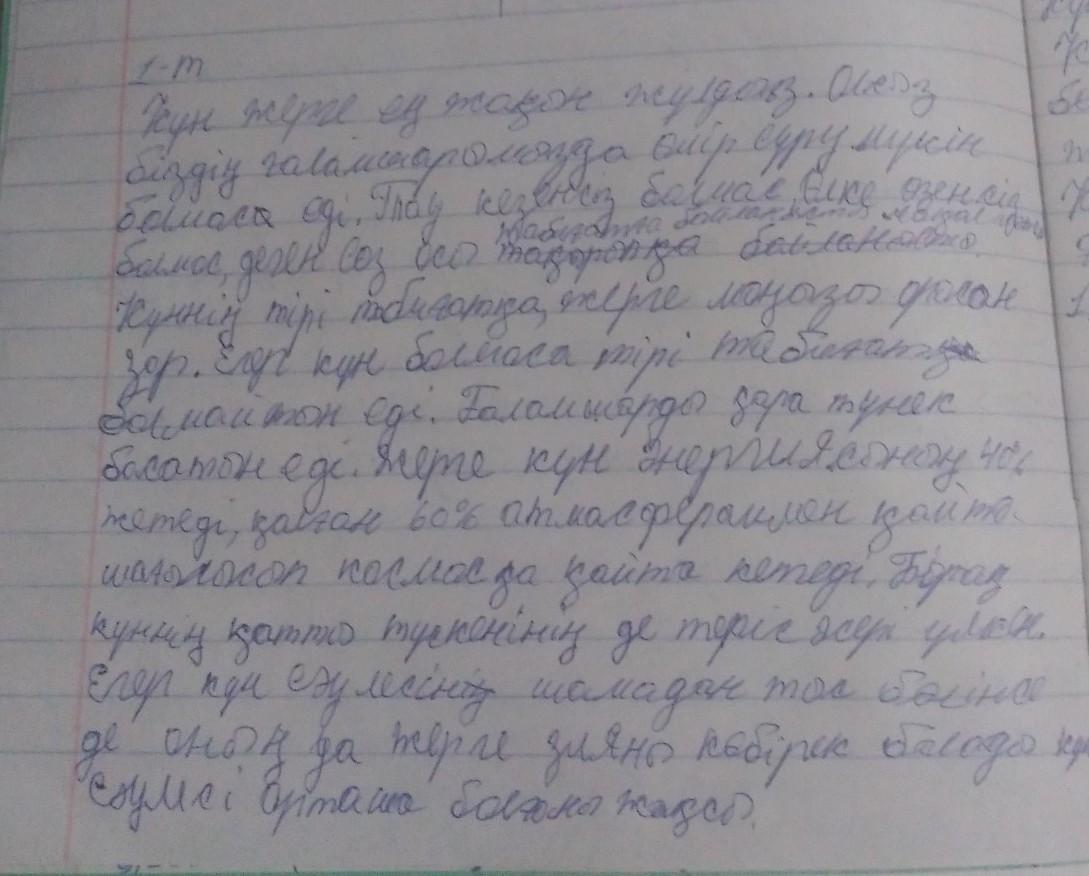 1-т
Күн жерге ең жақын жұлдыз. Онсыз
біздің ғаламшарымызда өмір сүру мүмкін
болмаса еді. Тау кезеңсіз болмас, Өлке өзенсіз
табиғатқа байланысты
болмас, деген сөз осы тақырыпқа байланысты
Күннің тірі табиғатқа, жерге маңызы орасан
зор. Егер күн болмаса тірі табиғат
болмайтын еді. Ғаламшарды қара түнек
басатын еді. Жерге күн энергиясының 40%
жетеді, қалған 60% атмосферамен қайта
шағылысып космосқа қайта кетеді. Бірақ
күннің қатты түскенінің де теріс әсері үлкен.
Егер күн сәулесінің шамадан тыс бөлінсе
де оның да жерге зияны көбірек болады күн
сәулесі орташа болғаны жақсы.